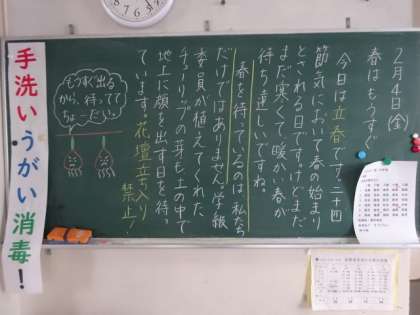 2月4日(金)
春はもうすぐ
今日は立春です。二十四
節気において春の始まり
とされる日ですけどまだ
まだ寒くて、暖かい春が
待ち遠しいですね。
春を待っているのは私たち
だけではありません。学級
委員が植えてくれた
チューリップの芽も土の中で
地上に顔を出す日を待っ
ています。花壇立ち入り
禁止!
もうすぐ出る
から、待ってて
ちょーだい。
手洗いうがい消毒!